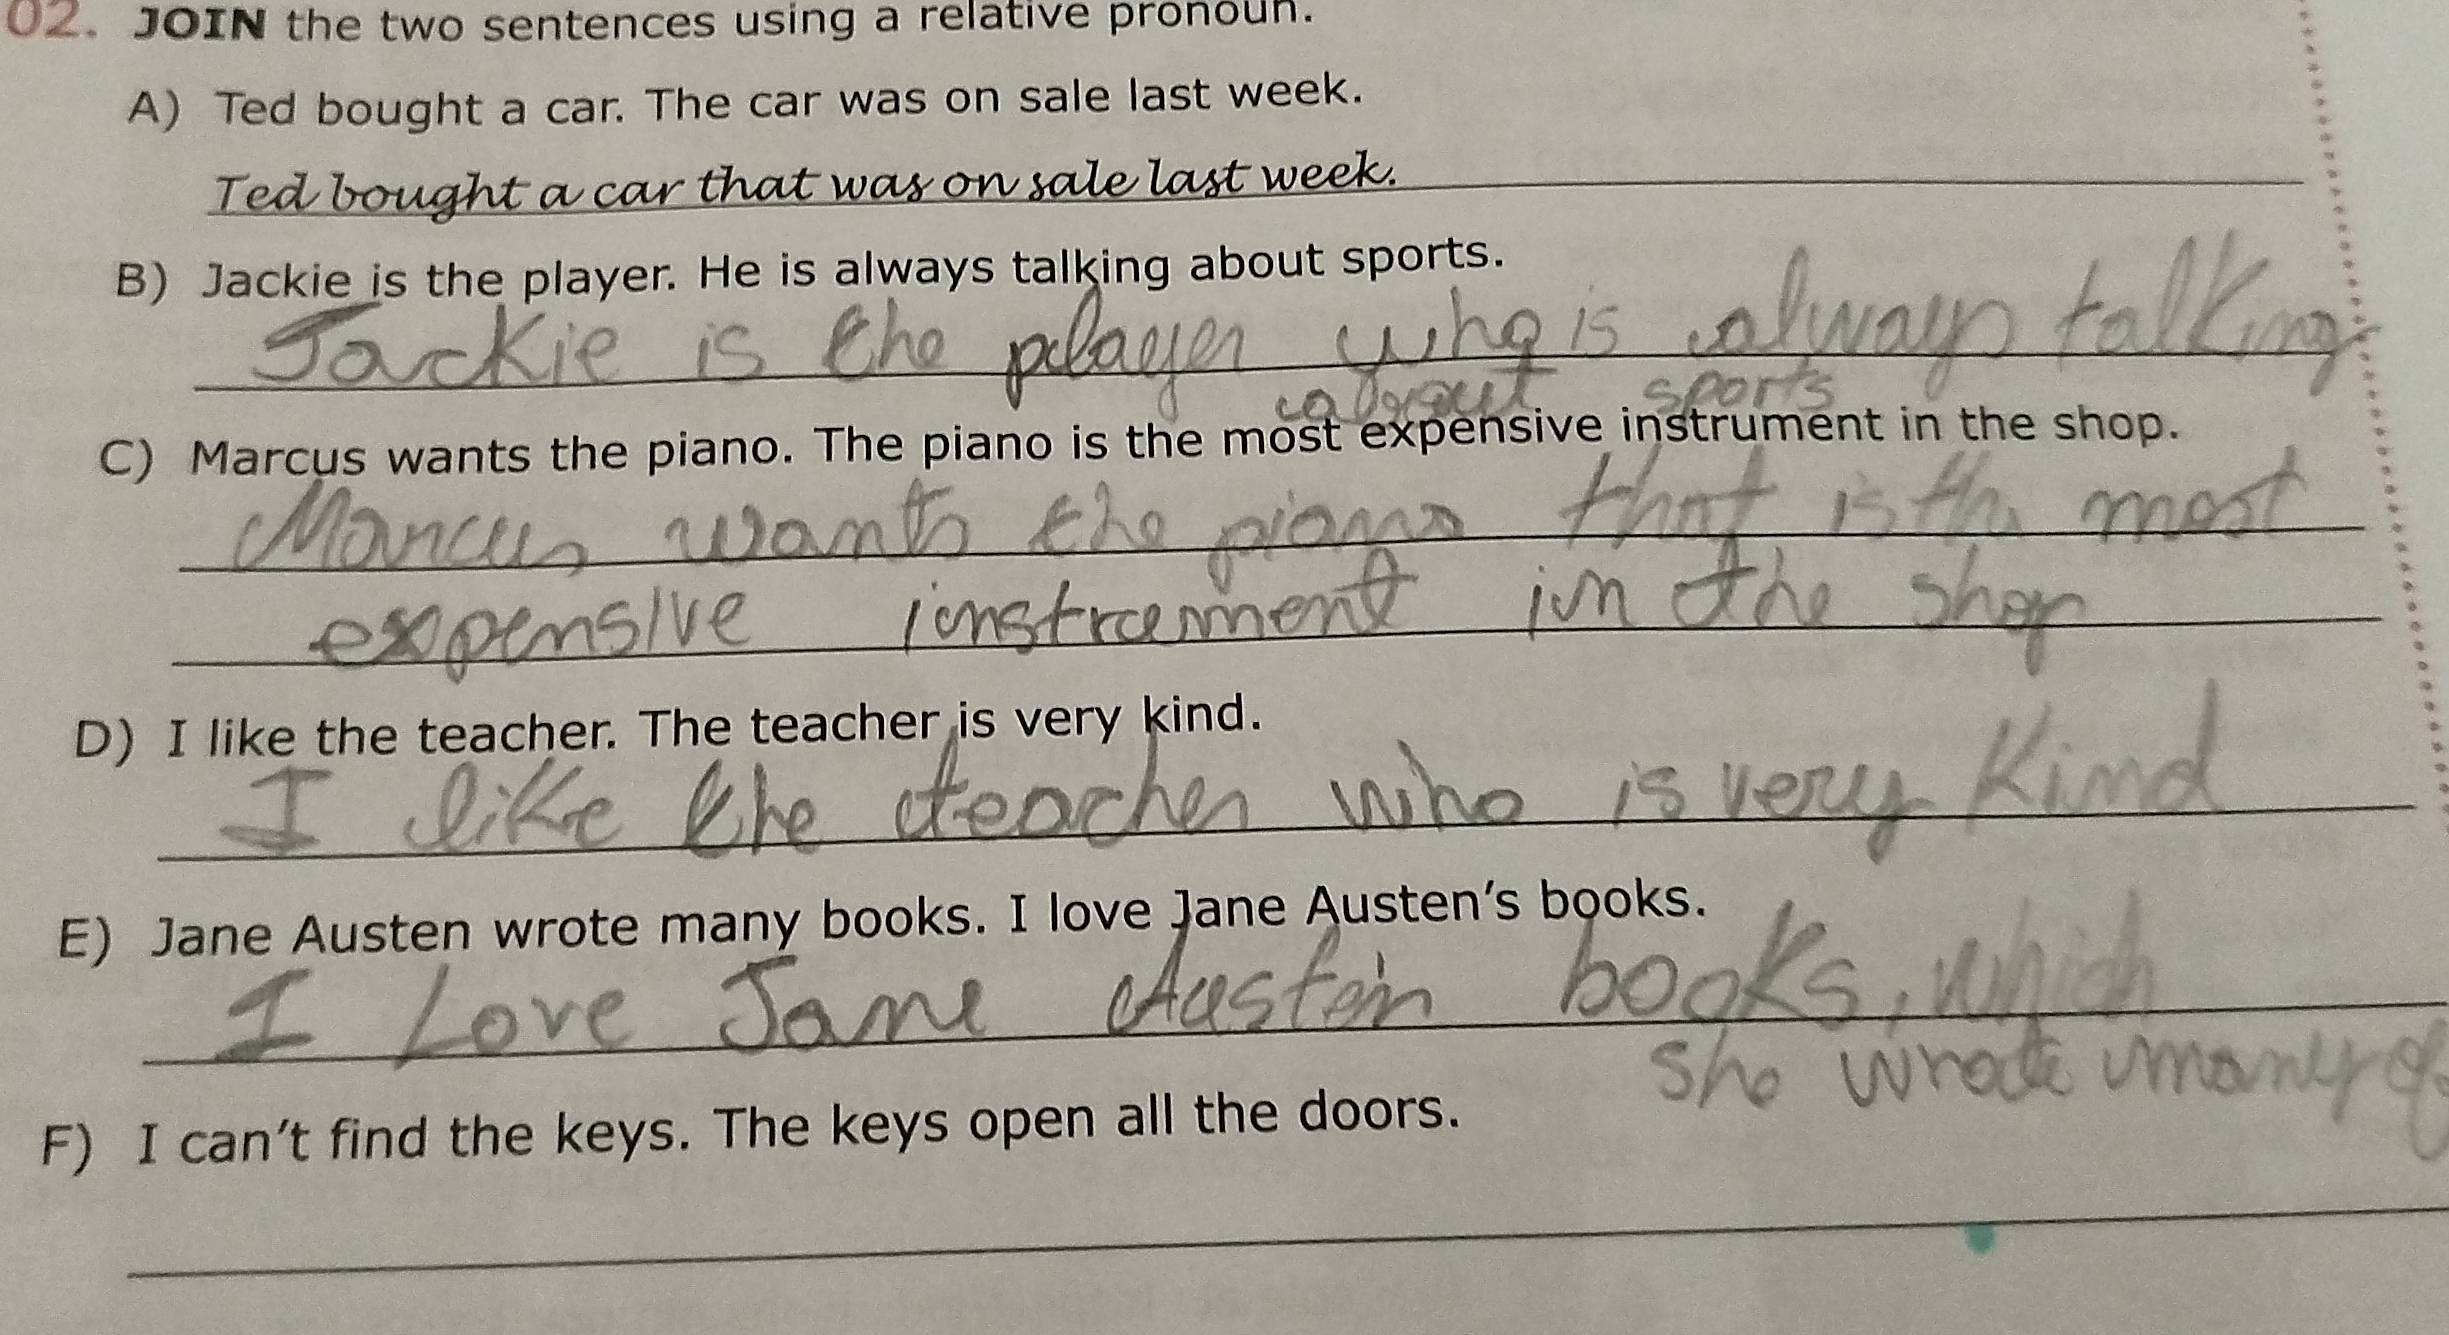 02. JOIN the two sentences using a relative pronoun.
A) Ted bought a car. The car was on sale last week.
Ted bought a car that was on sale last week.
B) Jackie is the player. He is always talking about sports.
Jackie is the player who is always talking
about sports
C) Marcus wants the piano. The piano is the most expensive instrument in the shop.
Marcus wants the piano that is the most
expensive instrument in the shop
D) I like the teacher. The teacher is very kind.
I like the teacher who is very kind
E) Jane Austen wrote many books. I love Jane Austen's books.
I Love Jane Austen books, which
she wrote many of
F) I can't find the keys. The keys open all the doors.